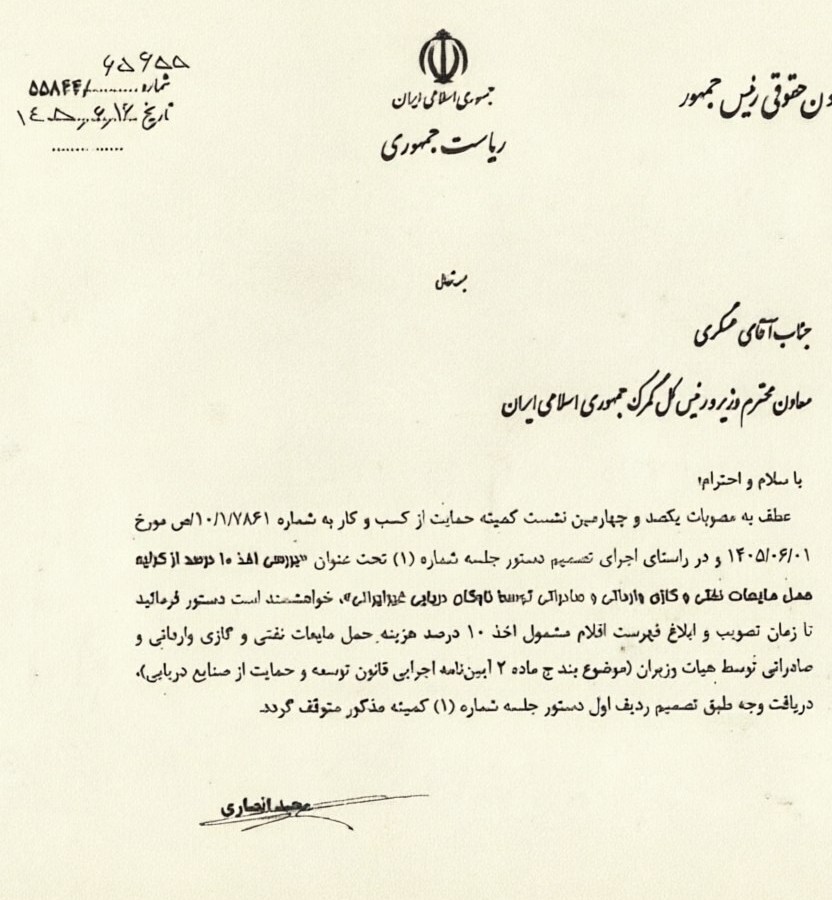 معاون حقوقی رئیس جمهور
جمهوری اسلامی ایران
ریاست جمهوری
۶۵۶۵۵
شماره ........../۵۵۸۴۴
تاریخ ۱۴۰۵.۶.۱۶
بسمه تعالی
جناب آقای عسکری
معاون محترم وزیر و رئیس کل گمرک جمهوری اسلامی ایران
با سلام و احترام؛
عطف به مصوبات یکصد و چهارمین نشست کمیته حمایت از کسب و کار به شماره ۱۰/۱/۷۸۶۱/ص مورخ
۱۴۰۵/۰۶/۰۱ و در راستای اجرای تصمیم دستور جلسه شماره (۱) تحت عنوان «بررسی اخذ ۱۰ درصد از کرایه
حمل مایعات نفتی و گازی وارداتی و صادراتی توسط ناوگان دریایی غیرایرانی»، خواهشمند است دستور فرمائید
تا زمان تصویب و ابلاغ فهرست اقلام مشمول اخذ ۱۰ درصد هزینه حمل مایعات نفتی و گازی وارداتی و
صادراتی توسط هیات وزیران (موضوع بند ج ماده ۲ آیین‌نامه اجرایی قانون توسعه و حمایت از صنایع دریایی)،
دریافت وجه طبق تصمیم ردیف اول دستور جلسه شماره (۱) کمیته مذکور متوقف گردد.
مجید انصاری